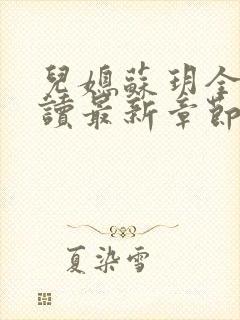 兒媳蘇玥全
讀最新章節
夏染雪